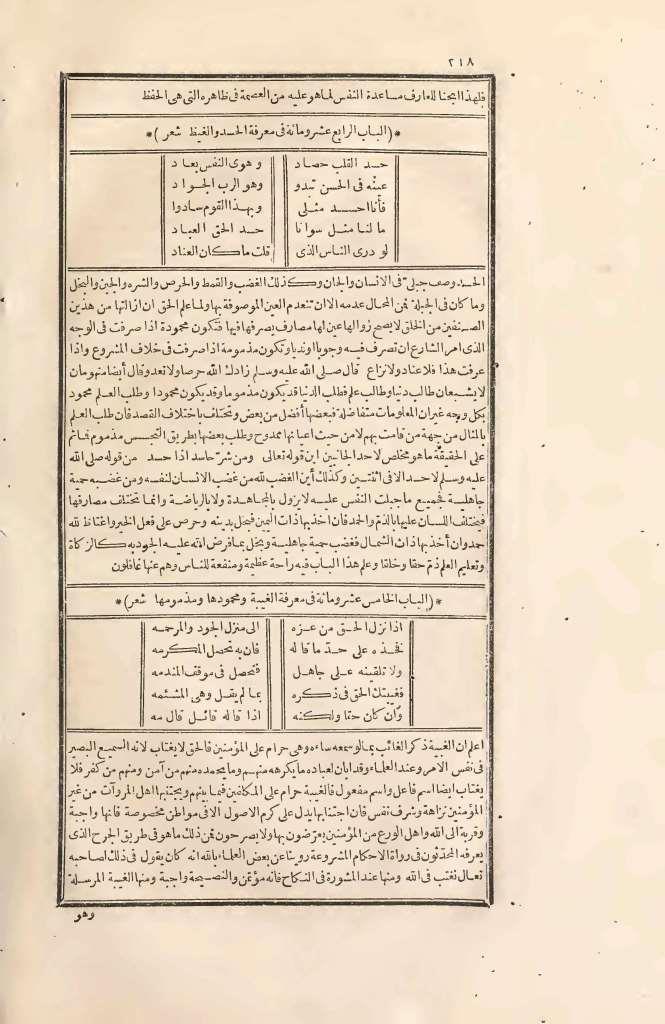 ٢١٨
فلهذا ابحنا للعارف مساعدة النفس لما هو عليه من العصمة فى ظاهره التى هى الحفظ
* (الباب الرابع عشر ومائة فى معرفة الحسد والغبط شعر) *
حسد القلب حصاد وهوى النفس يعاد
عينه فى الحسن تبدو وهو الرب الجواد
فأنا احسد مثلى وبهذا القوم سادوا
ما لنا مثل سوانا حسد الحق العباد
لو درى الناس الذى قلت ما كان العناد
الحسد وصف جبلى فى الانسان والجان وكذلك الغضب والغبط والحرص والشره والجبن والبخل
وما كان فى الجبلة فمن المحال عدمه الا ان تنعدم العين الموصوفة بها ولما علم الحق ان ازالتها من هذين
الصنفين من الخلق لا يصح زوالها عين لها مصارف يصرفها فيها فتكون محمودة اذا صرفت فى الوجه
الذى امر الشارع ان تصرف فيه وجوبا او ندبا وتكون مذمومة اذا صرفت فى خلاف المشروع واذا
عرفت هذا فلا عناد ولا نزاع قال صلى الله عليه وسلم زادك الله حرصا ولا تعد وقال أيضا منهومان
لا يشبعان طالب دنيا وطالب علم فطلب الدنيا قد يكون مذموما وقد يكون محمودا وطلب العلم محمود
بكل وجه غير ان المعلومات متفاضلة فبعضها أفضل من بعض وتختلف باختلاف القصد فان طلب العلم
بالمثال من جهة من قامت بهم لا من حيث اعيانها ممدوح وطلب بعضها بطريق التجسس مذموم فما ثم
على الحقيقة ما هو مخلص لاحد الجانبين اين قوله تعالى ومن شر حاسد اذا حسد من قوله صلى الله
عليه وسلم لا حسد الا فى اثنتين وكذلك أين الغضب لله من غضب الانسان لنفسه ومن غضبه حمية
جاهلية فجميع ما جبلت النفس عليه لا يزول بالمجاهدة ولا بالرياضة وانما تختلف مصارفها
فيختلف اللسان عليها بالذم والحمد فان اخذ بها ذات اليمين فبخل بدينه وحرص على فعل الخير واغتاظ لله
حمد وان أخذ بها ذات الشمال فغضب حمية جاهلية وبخل بما فرض الله عليه الجود به كالزكاة
وتعليم العلم ذم حقا وخلقا وعلم هذا الباب فيه راحة عظيمة ومنفعة للناس وهم عنها غافلون
* (الباب الخامس عشر ومائة فى معرفة الغيبة ومحمودها ومذمومها شعر) *
اذا نزل الحق من عزه الى منزل الجود والمرحمه
فخذه على حد ما قاله فان به تحصل المكرمه
ولا تلقينه على جاهل فتحصل فى موقف المندمه
فغيبتك الحق فى ذكره بما لم يقل وهى المشئمه
وان كان حقا ولكنه اذا قاله قائل قال مه
اعلم ان الغيبة ذكر الغائب بما لو سمعه ساءه وهى حرام على المؤمنين فالحق لا يغتاب لانه السميع البصير
فى نفس الامر وعند العلماء وقد ابان لعباده ما يكرهه منهم وما يحمده منهم من آمن ومنهم من كفر فلا
يغتاب ايضا اسم فاعل واسم مفعول فالغيبة حرام على المكلفين فيما بينهم ويجتنبها اهل المروآت من غير
المؤمنين نزاهة وشرف نفس فان اجتنابها يدل على كرم الاصول الا فى مواطن مخصوصة فانها واجبة
وقربة الى الله واهل الورع من المؤمنين يعرضون بها ولا يصرحون فمن ذلك ما هو فى طريق الجرح الذى
يعرفه المحدثون فى رواة الاحكام المشروعة روينا عن بعض العلماء بالله انه كان يقول فى ذلك لصاحبه
تعال نغتب فى الله ومنها عند المشورة فى النكاح فانه مؤتمن والنصيحة واجبة ومنها الغيبة المرسلة
وهو